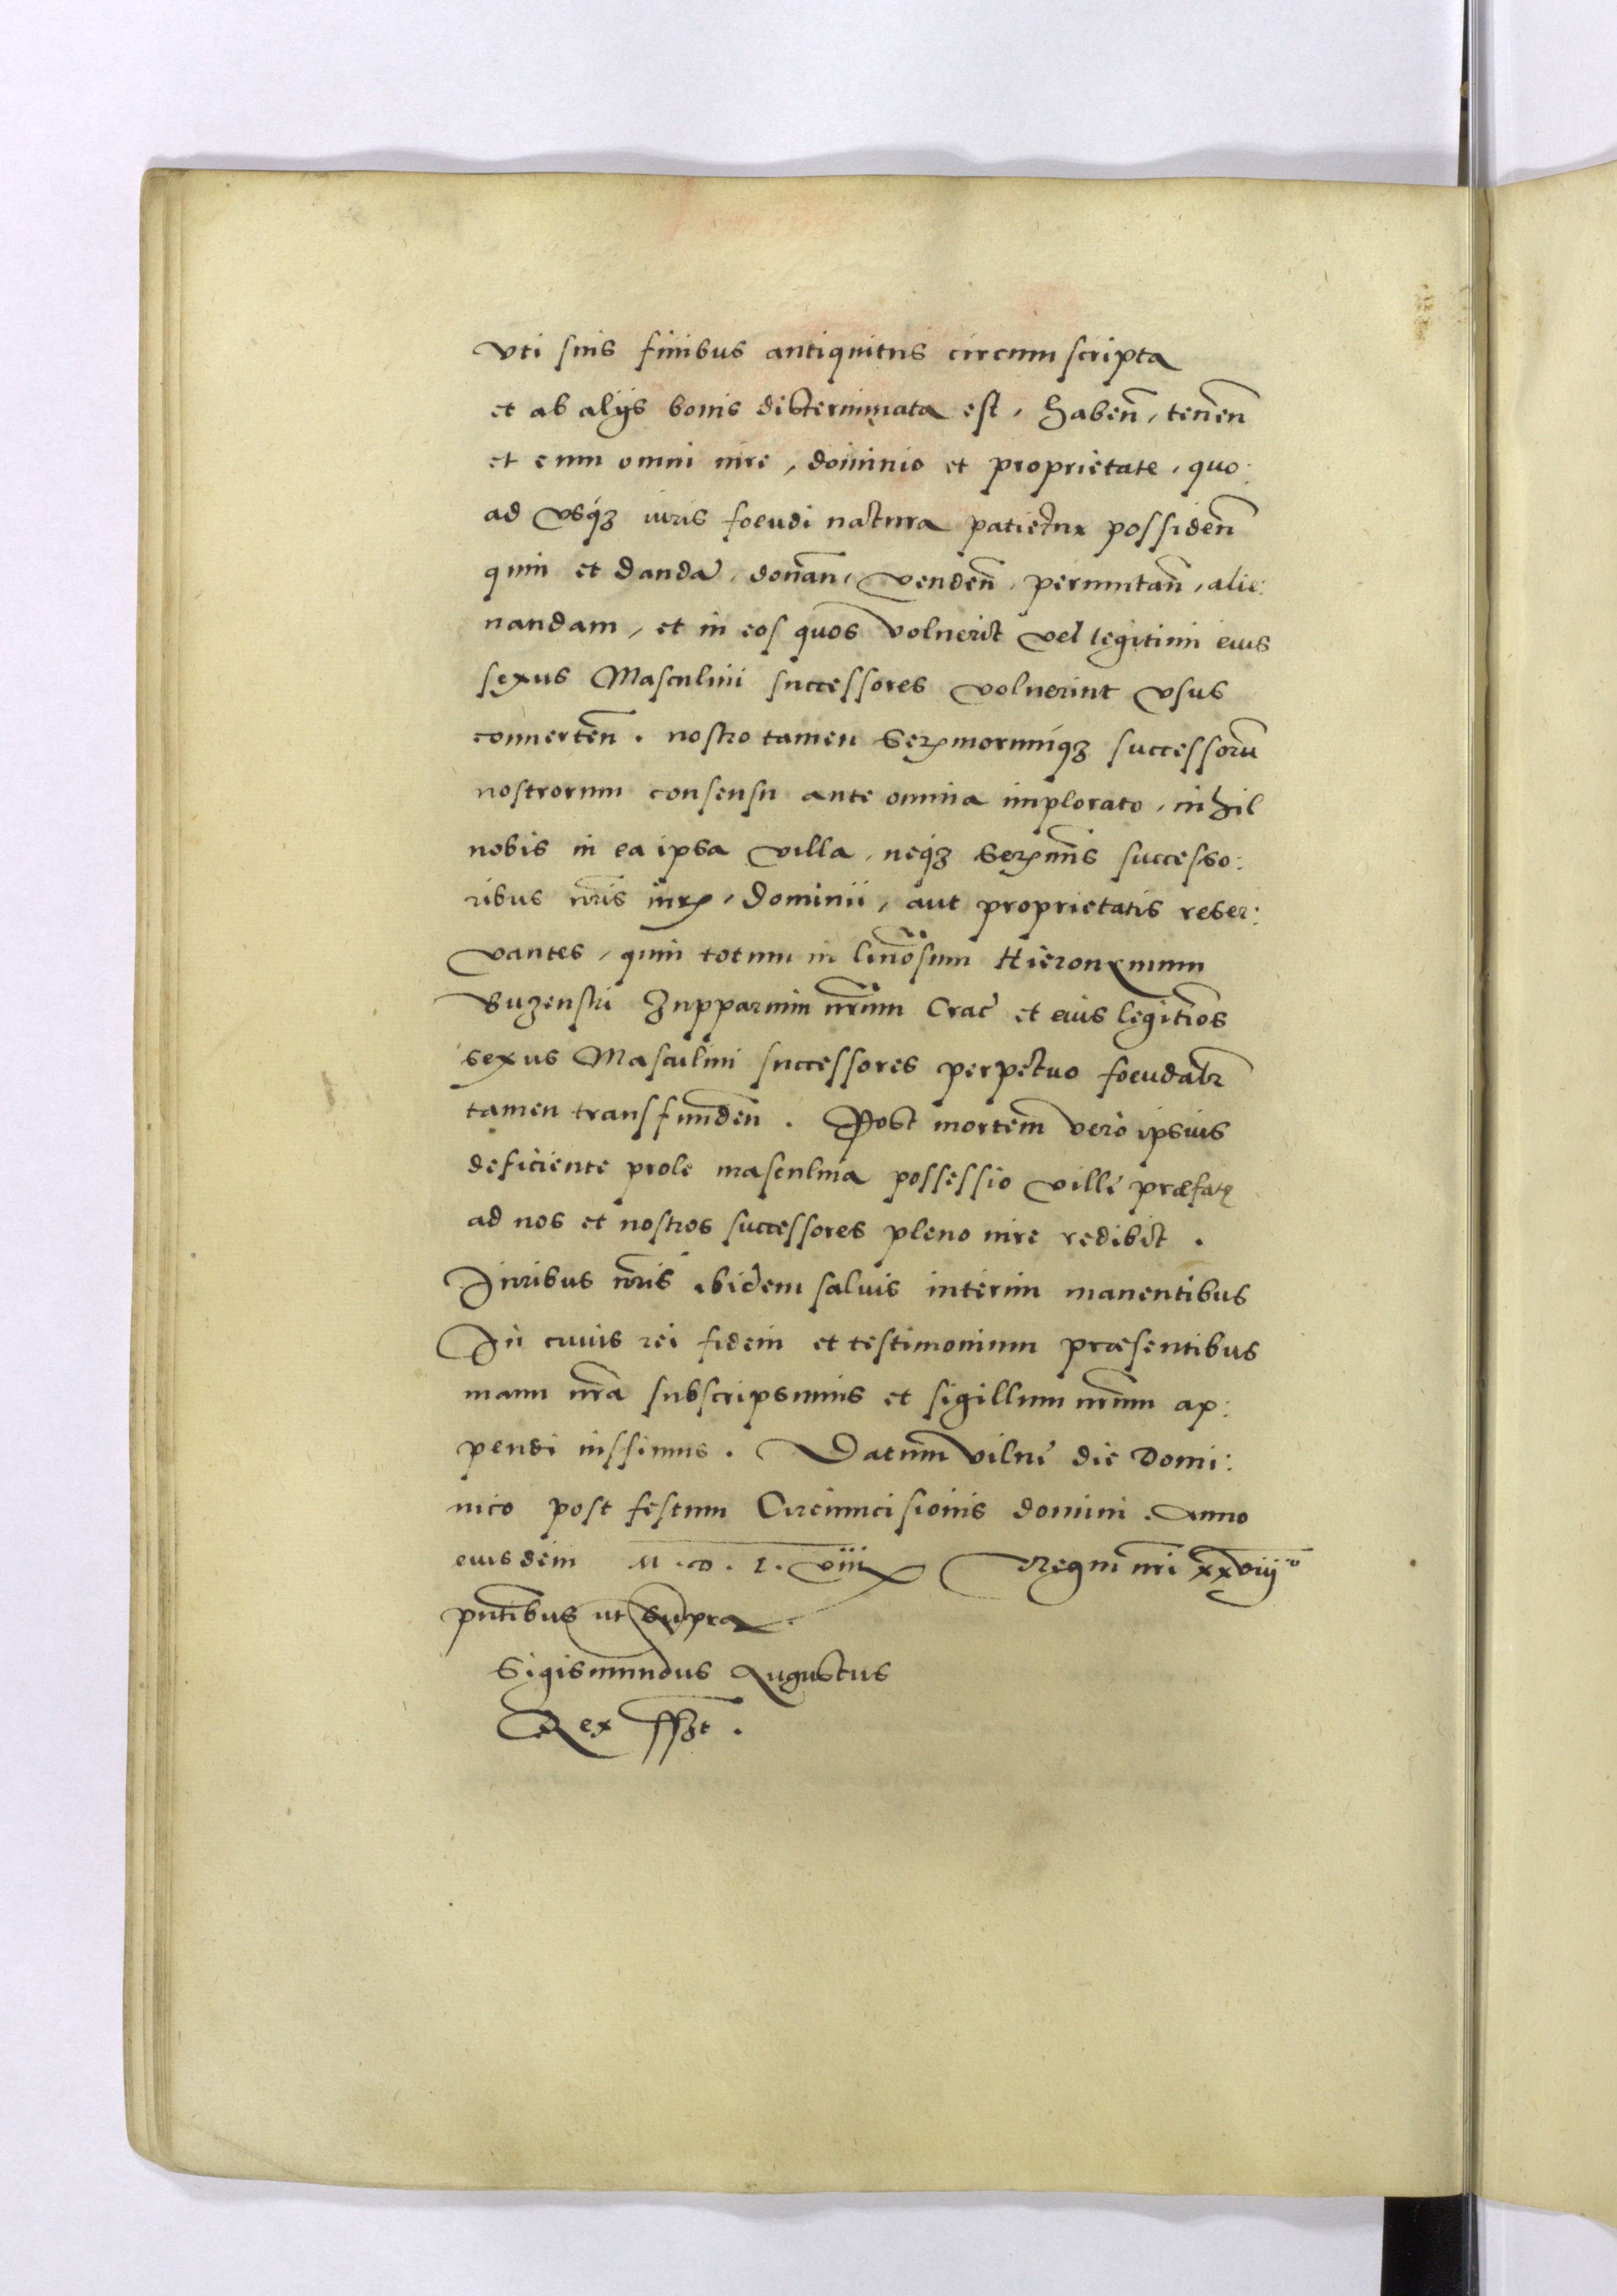 vti suis finibus antiquitus circumscripta
et ab alijs bonis disterminata est, habeñ, tenen̄
et cum omni iure, dominio et proprietate, quo:
ad vsqꝫ iuris foeudi natura patietur possiden̄
quin et dandā, donan̄, venden̄, permutan̄, alie:
nandam, et in eos quos voluerit vel legitimi eius
sexus Masculini successores voluerint vsus
conuerten̄. nostro tamen Sermorumqꝫ successorū
nostrorum consensu ante omnia implorato, nihil
nobis in ea ipsa villa, neqꝫ Sermis successo:
ribus nr̄is iurꝭ, dominii, aut proprietatis reser:
vantes, quin totum in Gn̄osum Hieronymum
Buzenski Zupparium nr̄um Crac̄ et eius legitīos
sexus Masculini successores perpetuo foeudalr̄
tamen transfunden̄. Post mortem verò ipsius
deficiente prole masculina possessio villę praefatę
ad nos et nostros successores pleno iure redibit.
Iuribus nr̄is ibidem saluis interim manentibus
In cuius rei fidem et testimonium praesentibus
manu nr̄a subscripsimus et sigillum nr̄um ap:
pendi iussimus. Datum Vilnę die Domi:
nico post festum Circumcisionis domini. Anno
eiusdem M. D. L. viii Regni nr̄i xxviijo
pn̄tibus ut supra.
Sigismundus Augustus
Rex sszt.